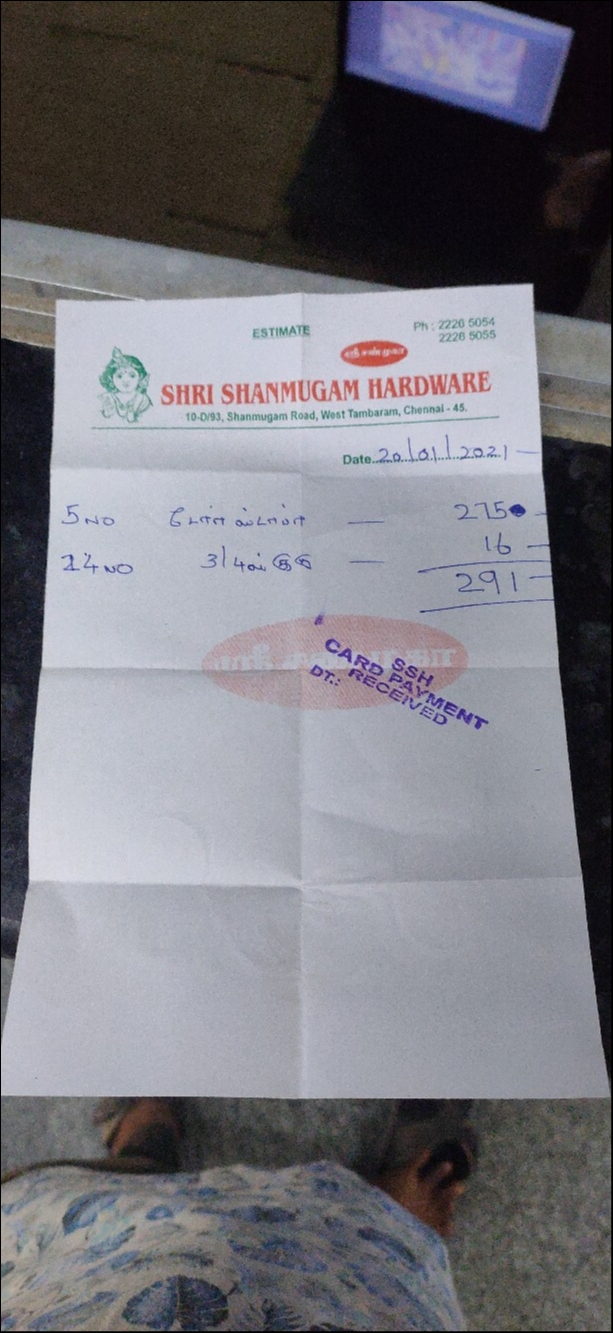 ESTIMATE
Ph : 2226 5054
2226 5055
ஸ்ரீ சண்முகா
SHRI SHANMUGAM HARDWARE
10-D/93, Shanmugam Road, West Tambaram, Chennai - 45.
Date 20/01/2021 -
5 NO — 275 -
14 NO 3/4 — 16 -
291 -
SSH
CARD PAYMENT
RECEIVED
DT.: